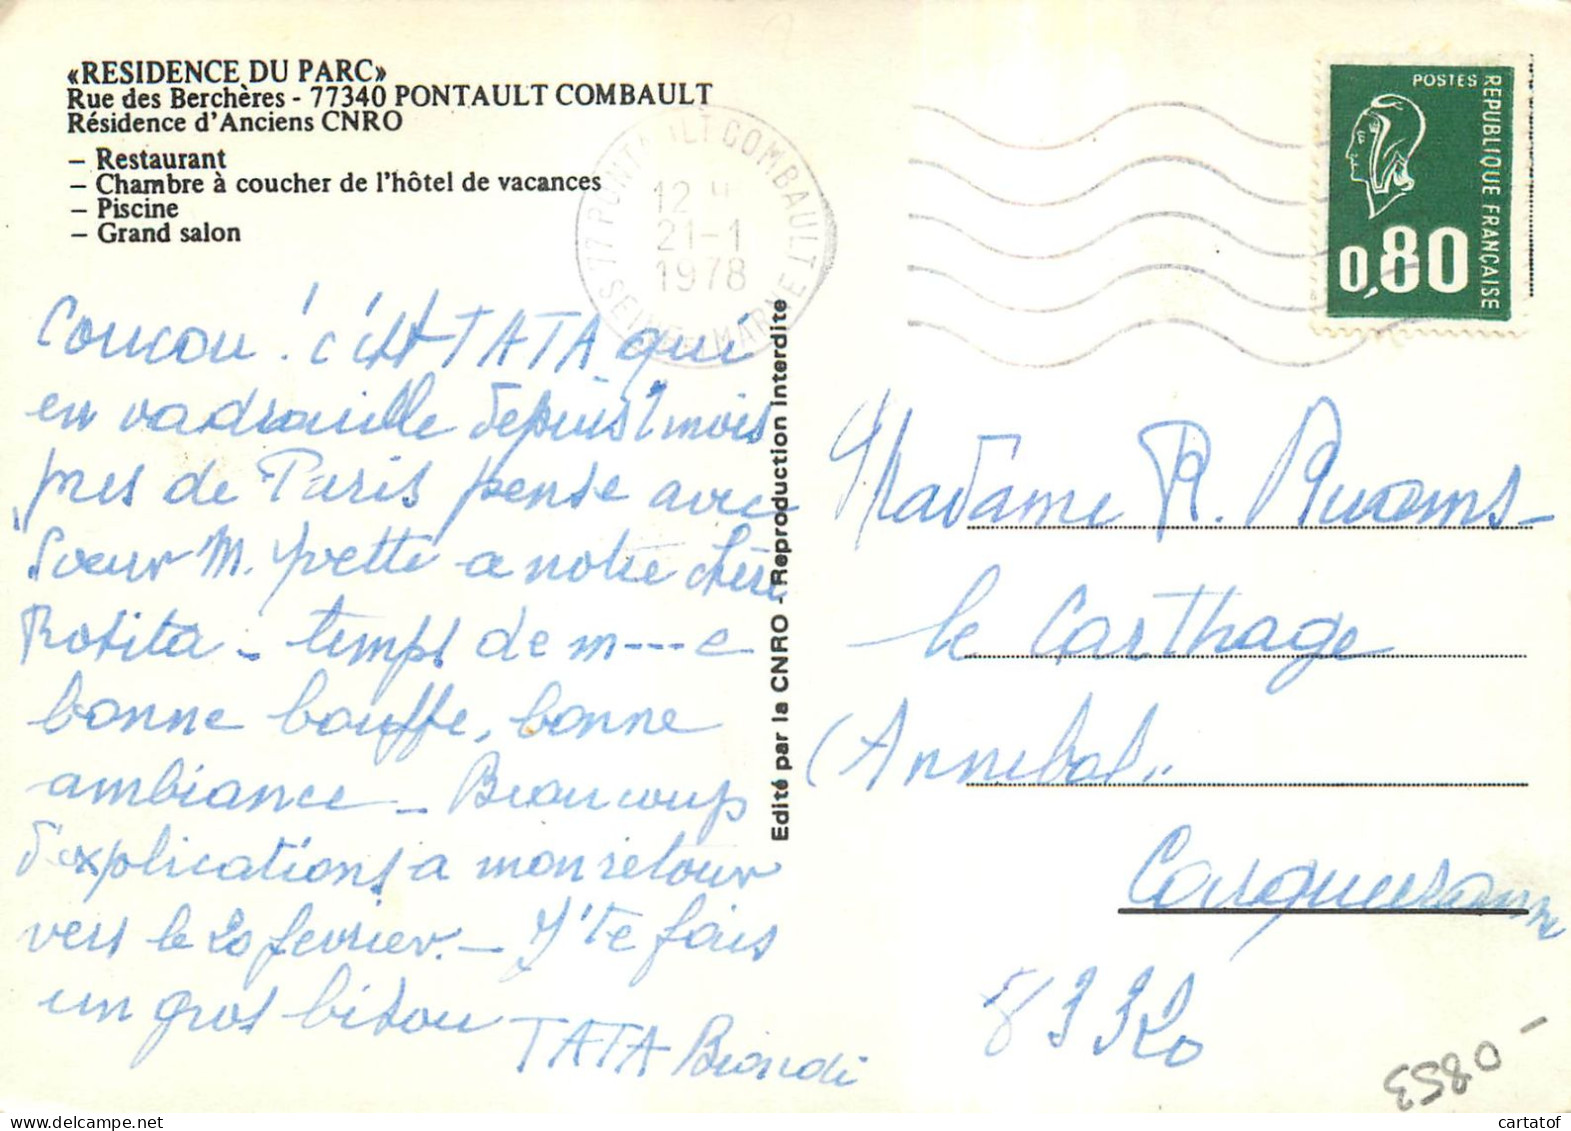 «RESIDENCE DU PARC»
Rue des Berchères - 77340 PONTAULT COMBAULT
Résidence d'Anciens CNRO
– Restaurant
– Chambre à coucher de l'hôtel de vacances
– Piscine
– Grand salon
77 PONTAULT COMBAULT
12 H
21-1
1978
SEINE-ET-MARNE
POSTES
REPUBLIQUE FRANÇAISE
0,80
Coucou ! c'est TATA qui
en vadrouille depuis 1 mois
pres de Paris pense avec
Soeur M. Yvette a notre chère
Rosita - temps de m---e
bonne bouffe, bonne
ambiance - Beaucoup
d'explications a mon retour
vers le 20 fevrier. - J'te fais
un gros bisou TATA Biondi
Edité par la CNRO - Reproduction interdite
Madame R.
le Carthage
(Annibal"
Carqueiranne
83320
0853
cartatof